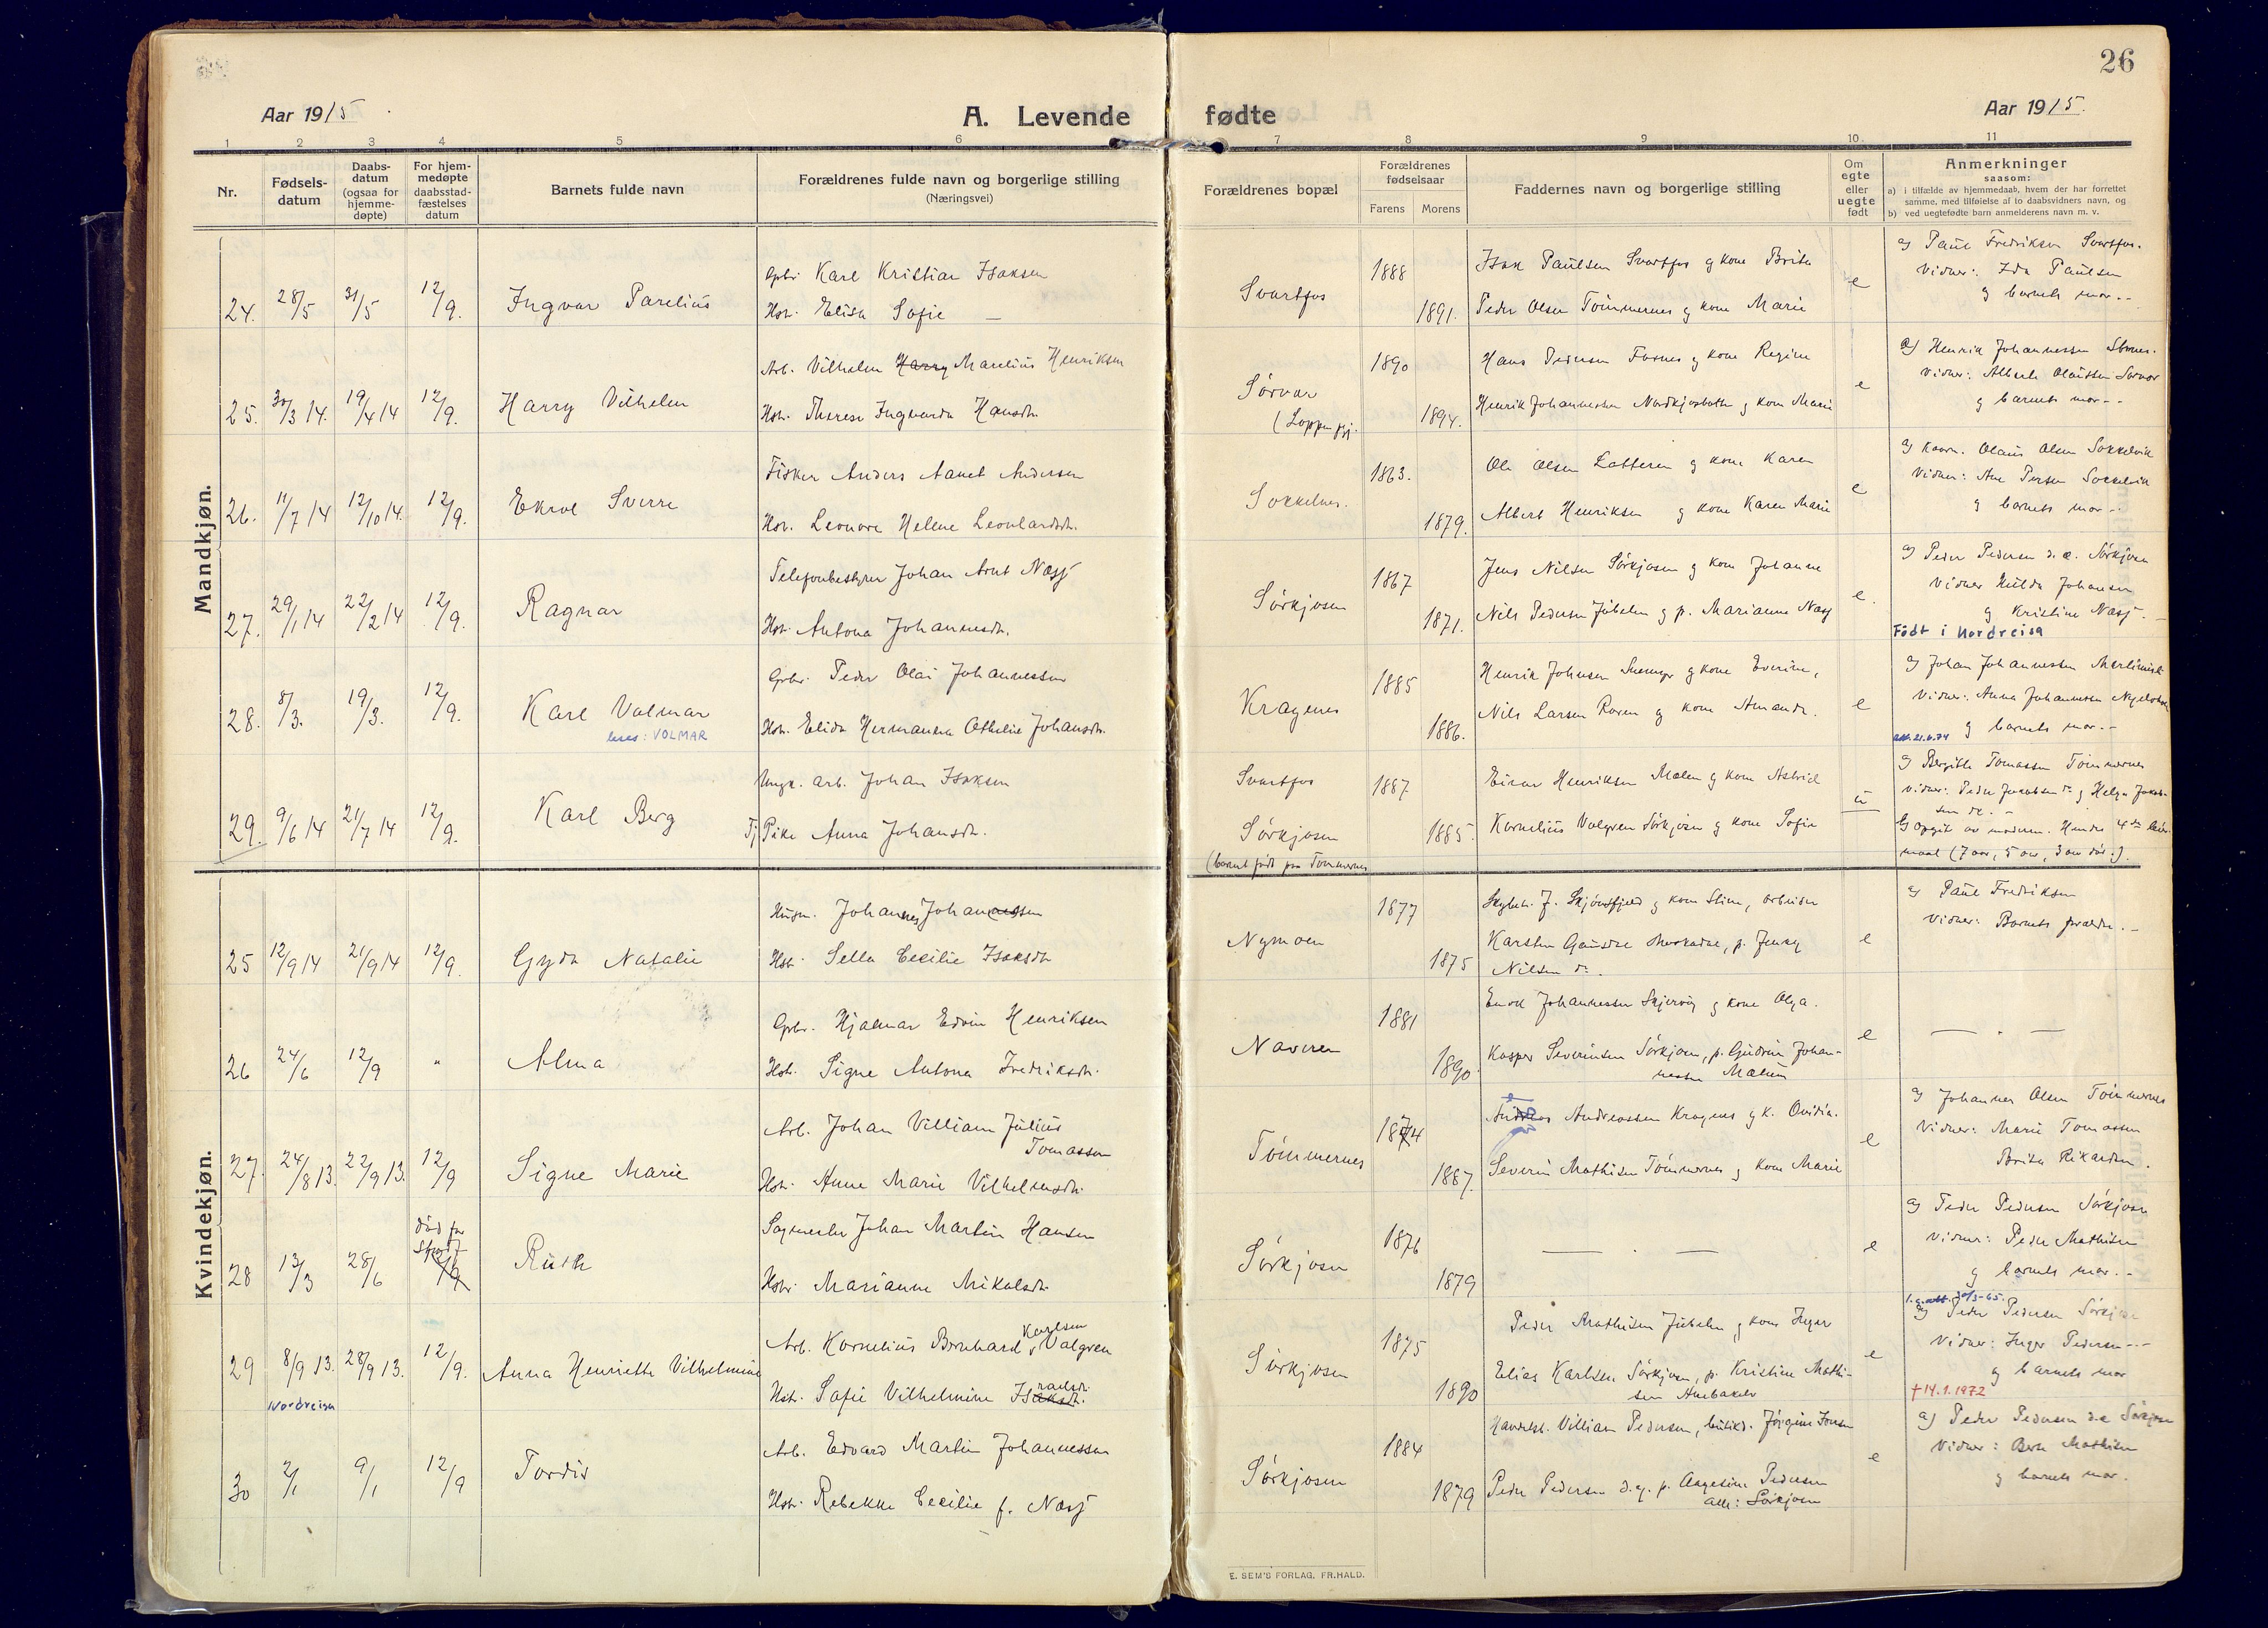 26
Aar 1915
A. Levende
fødte
Aar 1915.
1 2 3 4 5 6 7 8 9 10. 11
Nr.
Fødsels-
datum
Daabs-
datum
(ogsaa for
hjemme-
døpte)
For hjem-
medøpte
daabsstad-
fæstelses
datum
Barnets fulde navn
Forældrenes fulde navn og borgerlige stilling
(Næringsvei)
Forældrenes bopæl
Forældrenes
fødselsaar
Farens Morens
Faddernes navn og borgerlige stilling
Om
egte
eller
uegte
født
Anmerkninger
saasom:
a) i tilfælde av hjemmedaab, hvem der har forrettet
samme, med tilføielse af to daabsvidners navn, og
b) ved uegtefødte barn anmelderens navn m. v.
Mandkjøn.
24. 28/5 31/5 12/9. Ingvar Parelius
Gbr. Karl Kristian Isaksen
Hst. Elisa Sofie —
Svartfos 1888 1891.
Isak Paulsen Svartfos g kone Brita
Peder Olsen Tömmernes g kone Marie
e
a) Paul Fredriksen Svartfos.
Vidner: Ida Paulsen
g barnets mor.-
25. 30/3 14. 19/4 14 12/9. Harry Vilhelm
Arb. Vilhelm Harry Marelius Henriksen
Hst. Therese Ingvarda Hansdtr.
Sörvær
(Loppen pgj.
1890 1894.
Hans Pedersen Fornes g kone Regine
Henrik Johannesen Nordkjosbotn g kone Marie
e
a) Henrik Johannessen
Vidner: Olaussen Sørvær
g barnets mor--
26. 11/7 14 12/10 14. 12/9. Ekrol Sverre
Fisker Anders Anet Andersen
Hst. Leonore Helene Leonhardsdtr.
Sokkelnes. 1863. 1879.
Ole Olsen g kone Karen
Albert Henriksen g kone Karen Marie
e
a) Olaus Olsen Sokkelvik
Vidner: Ane Persen Sokkelvik
g barnets mor--
27. 29/1 14 22/2 14 12/9. Ragnar
Telefonbestyrer Johan Arnt Næsj
Hst. Antona Johannesdtr.
Sörkjosen 1867 1871.
Jens Nilsen Sörkjosen g kone Johanne
Nils Pedersen Jübelen g p. Marianne Næsj
e.
a) Peder Pedersen d.æ. Sörkjosen
Vidner Hulda Johansen
g Kristine Næsj.-
Født i Nordreisa
28. 8/3. 19/3. 12/9. Karl Valmar
leses: VOLMAR
Gbr. Peder Olai Johannessen
Hst. Elida Hermanda Othelie Johansdtr.
Kragenes 1885 1886.
Henrik Johnsen g kone Everine,
Nils Larsen Raven g kone Amanda.
e
a) Johan Johannessen
Vidner: Anna Johannesen
g barnets mor.-
29. 9/6 14 21/7 14 12/9. Karl Berg
Ungk. arb. Johan Isaksen
Tj Pike Anna Johansdtr.
Svartfos
Sörkjosen
(barnet födt paa Tömmernes
1887 1885.
Einar Henriksen Mælen g kone Astrid
Kornelius Valgren Sörkjosen g kone Sofie
u
a) Bergitte Tomassen Tömmernes
Vidner: Peder Jakobsen do g Helga Jakob-
sen do. -
b) opgit av moderen. Hendes 4de leier-
maal (7 aar, 5 aar, 3 aar död.)
Kvindekjøn.
25 12/9 14 21/9 14 12/9. Gyda Natalie
Husm. Johannes Johannessen
Hst. Sella Cecilie Isaksdtr
Nymoen 1877 1875
J. Skjönsfjeld g kone Stine, arbeider
Karsten Gausdal, p. Jenny
Nilsen do.
e
a) Paul Fredriksen
Vidner: Barnets forældre.-
26 24/6 12/9 " Alma
Gbr. Hjalmar Edvin Henriksen
Hst. Signe Antona Fredriksdtr.
Naveren 1881 1890.
Enok Johannessen Skjervöy g kone Olga.
Kasper Severinsen Sörkjosen, p. Gudrun Johan-
nesen Mælen
e
— . —
27. 24/8 13. 22/9 13. 12/9 Signe Marie
Arb. Johan Villiam Julius
Tomassen
Hst. Anne Marie Vilhelmsdtr.
Tömmernes 1874 1887.
Andreas Andreassen Kragnes g k. Ovidia.
Severin Mathisen Tömmernes g kone Marie
e
a) Johannes Olsen Tömmernes
Vidner: Marie Tomassen
Brita Rikardsen.
28 13/3 28/6 död før
12/9 Ruth
Sagmester Johan Martin Hansen
Hst. Marianne Mikalsdtr.
Sörkjosen 1876 1879
— . —
e
a) Peder Pedersen Sörkjosen
Vidner: Peder Mathisen
g barnets mor.-
29 8/9 13. 28/9 13. 12/9. Anna Henriette Vilhelmine
Nordreisa
Arb. Kornelius Bernhard Karlsen Valgren
Hst. Sofie Vilhelmine Isaksdtr. raelsdtr.
Sörkjosen 1875 1890
Peder Mathisen Jübelen g kone Inger
Elias Karlsen Sörkjosen, p. Kristine Mathi-
sen
e
a) Peder Pedersen Sörkjosen
Vidner: Inger Pedersen--
g barnets mor
†14.1.1972
30 2/1 9/1 12/9 Tordis
Arb. Edvard Martin Johannessen
Hst. Rebekka Cecilie f. Næsj
Sörkjosen 1884 1879
Handelsb. Villiam Pedersen, butikd. Jörgine Jensen
Peder Pedersen d.y. p. Angeline Pedersen
alle: Sörkjosen
e
a) Peder Pedersen d.æ Sörkjosen
Vidner: Berit Mathisen
g barnets mor.
E. SEM'S FORLAG, FR.HALD.